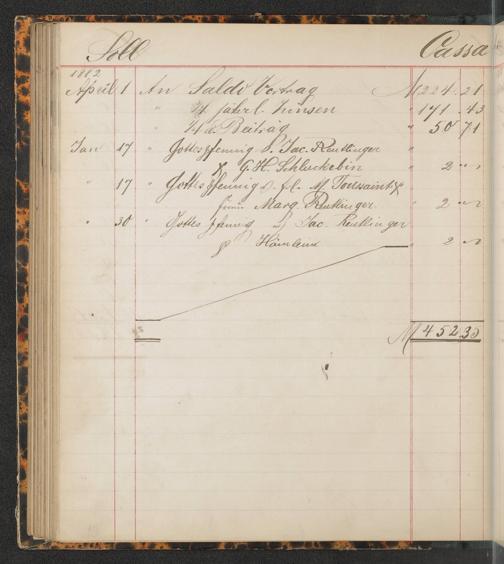 Soll Cassa
1892
April 1 An Saldo Vortrag M 224.21
" 1/4 jährl. Zinsen " 171.43
" 1/4 d. Beitrag " 50 71
Jan 17 " Gottespfennig v. Jac. Reutlinger "
& G. H. Schluchebin " 2 "
" 17 " Gottespfennig v. fl. M. Toussaint &
Marg. Reutlinger " 2 "
" 30 " Gottespfennig Jac. Reutlinger
& " 2 "
M 452 35